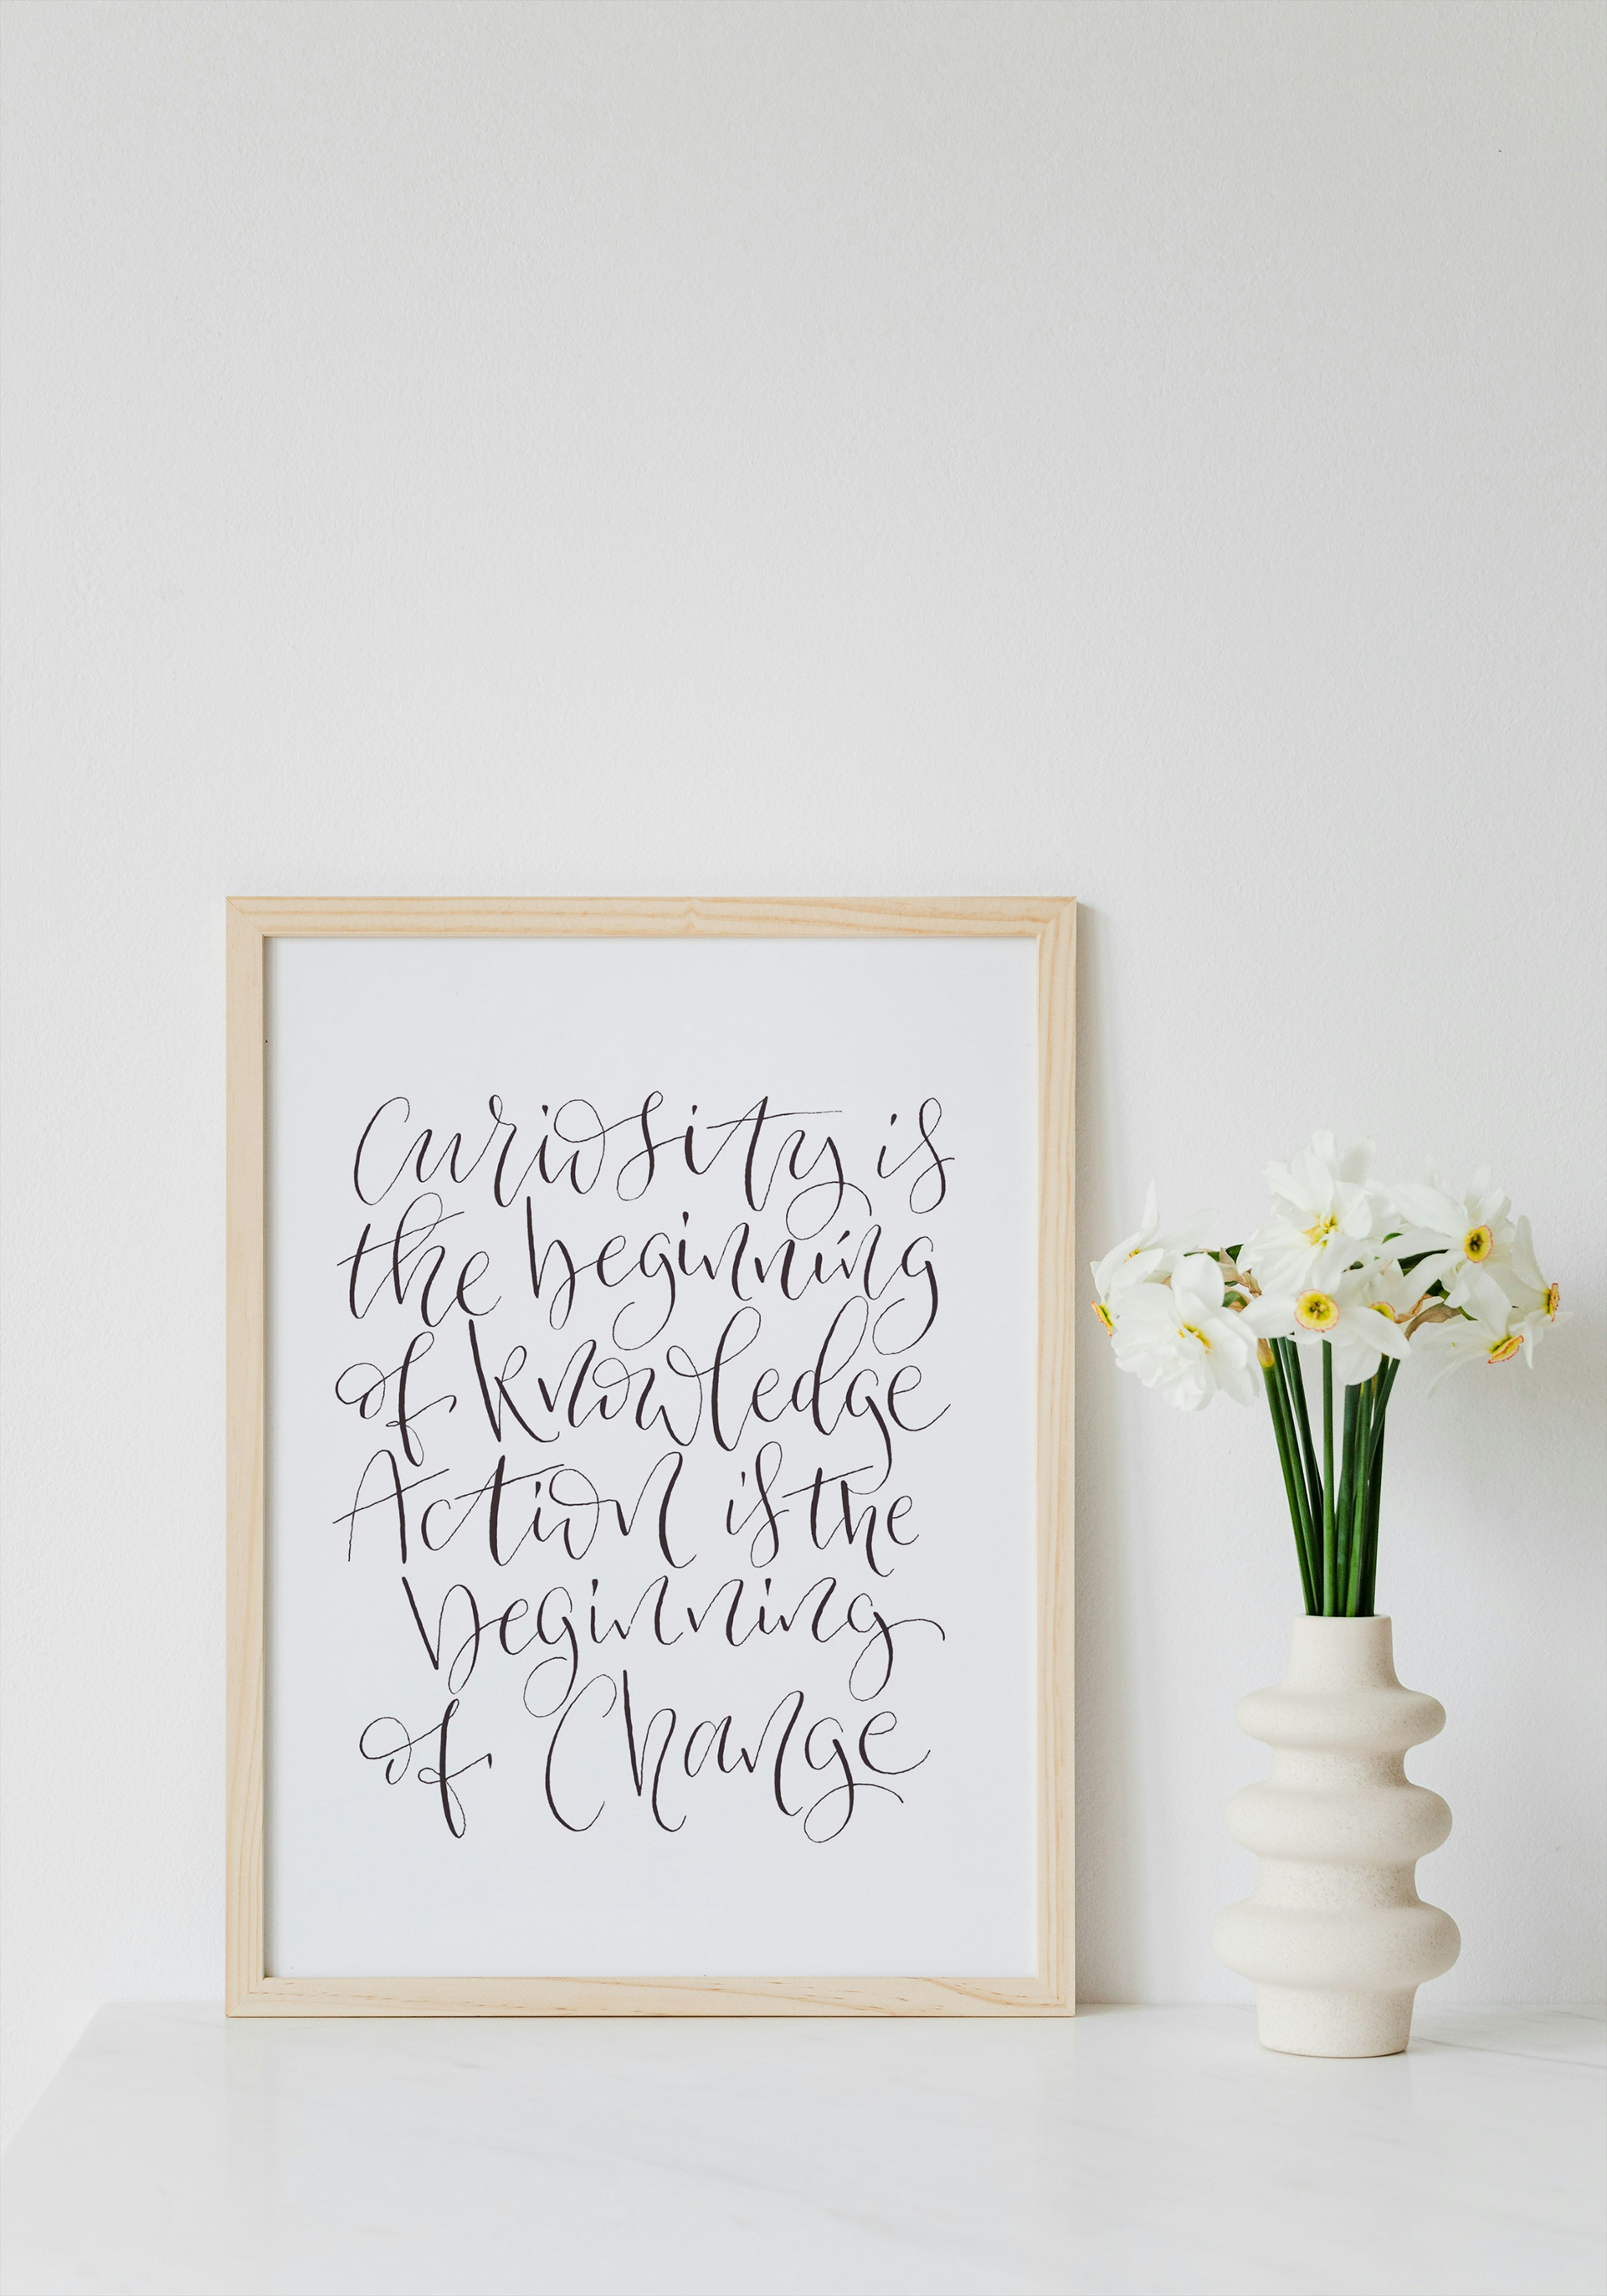 Curiosity is
the beginning
of knowledge
Action is the
beginning
of Change